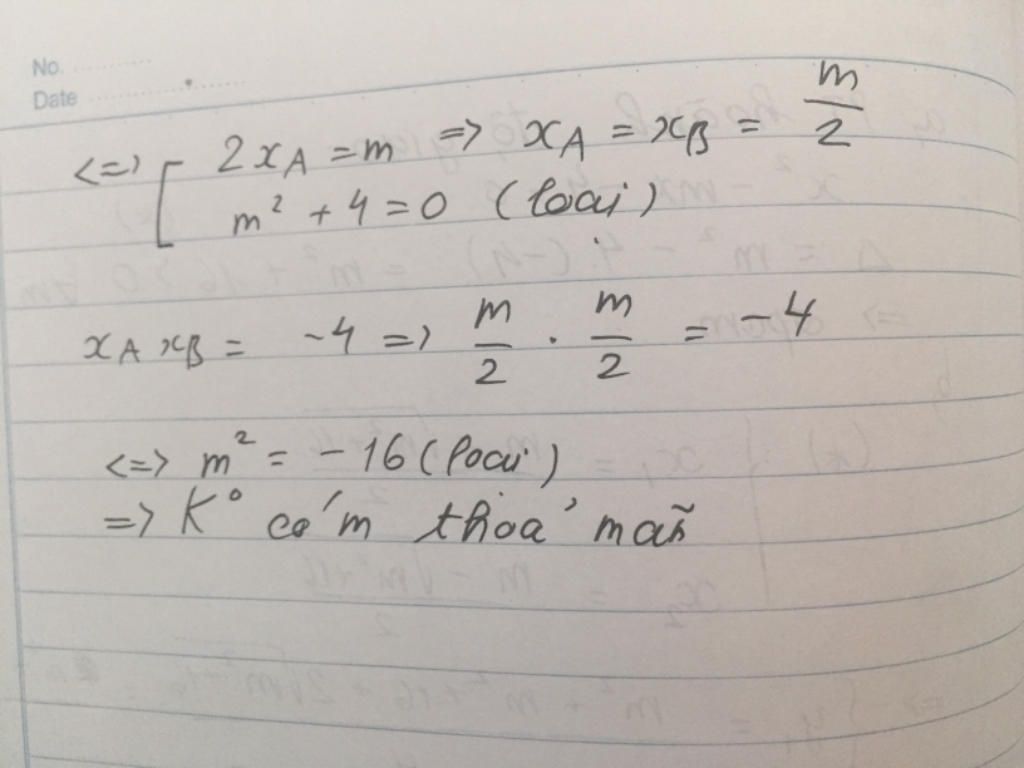 No.
Date
<=> [ 2x_A = m => x_A = x_B = m/2
m² + 4 = 0 (loại)
x_A x_B = -4 => m/2 . m/2 = -4
<=> m² = -16 (loại)
=> K° có m thỏa mãn